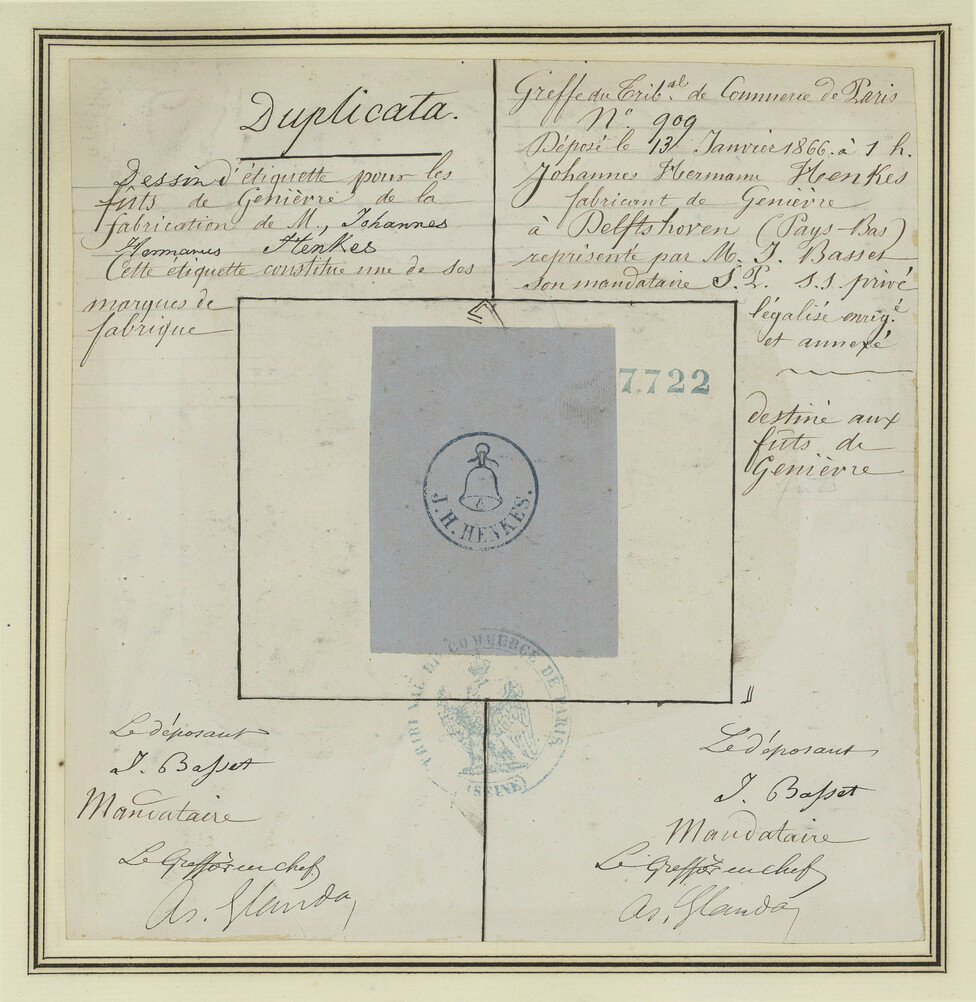 Duplicata.
Dessin d'étiquette pour les
fûts de Genièvre de la
fabrication de M., Johannes
Hermanus Henkes
Cette étiquette constitue une de ses
marques de
fabrique
Greffe du Tribal de Commerce de Paris
N° 909
Déposé le 13 Janvier 1866 à 1 h.
Johannes Hermann Henkes
fabricant de Genièvre
à Delftshoven (Pays-Bas)
représenté par M. J. Basset
son mandataire S.P. s.s. privé
légalisé enrigé
et annexé
destiné aux
fûts de
Genièvre
7722
J. H. HENKES.
TRIBUNAL DE COMMERCE DE PARIS
(SEINE)
Le déposant
J. Basset
Mandataire
Le Greffier en chef
Le déposant
J. Basset
Mandataire
Le Greffier en chef